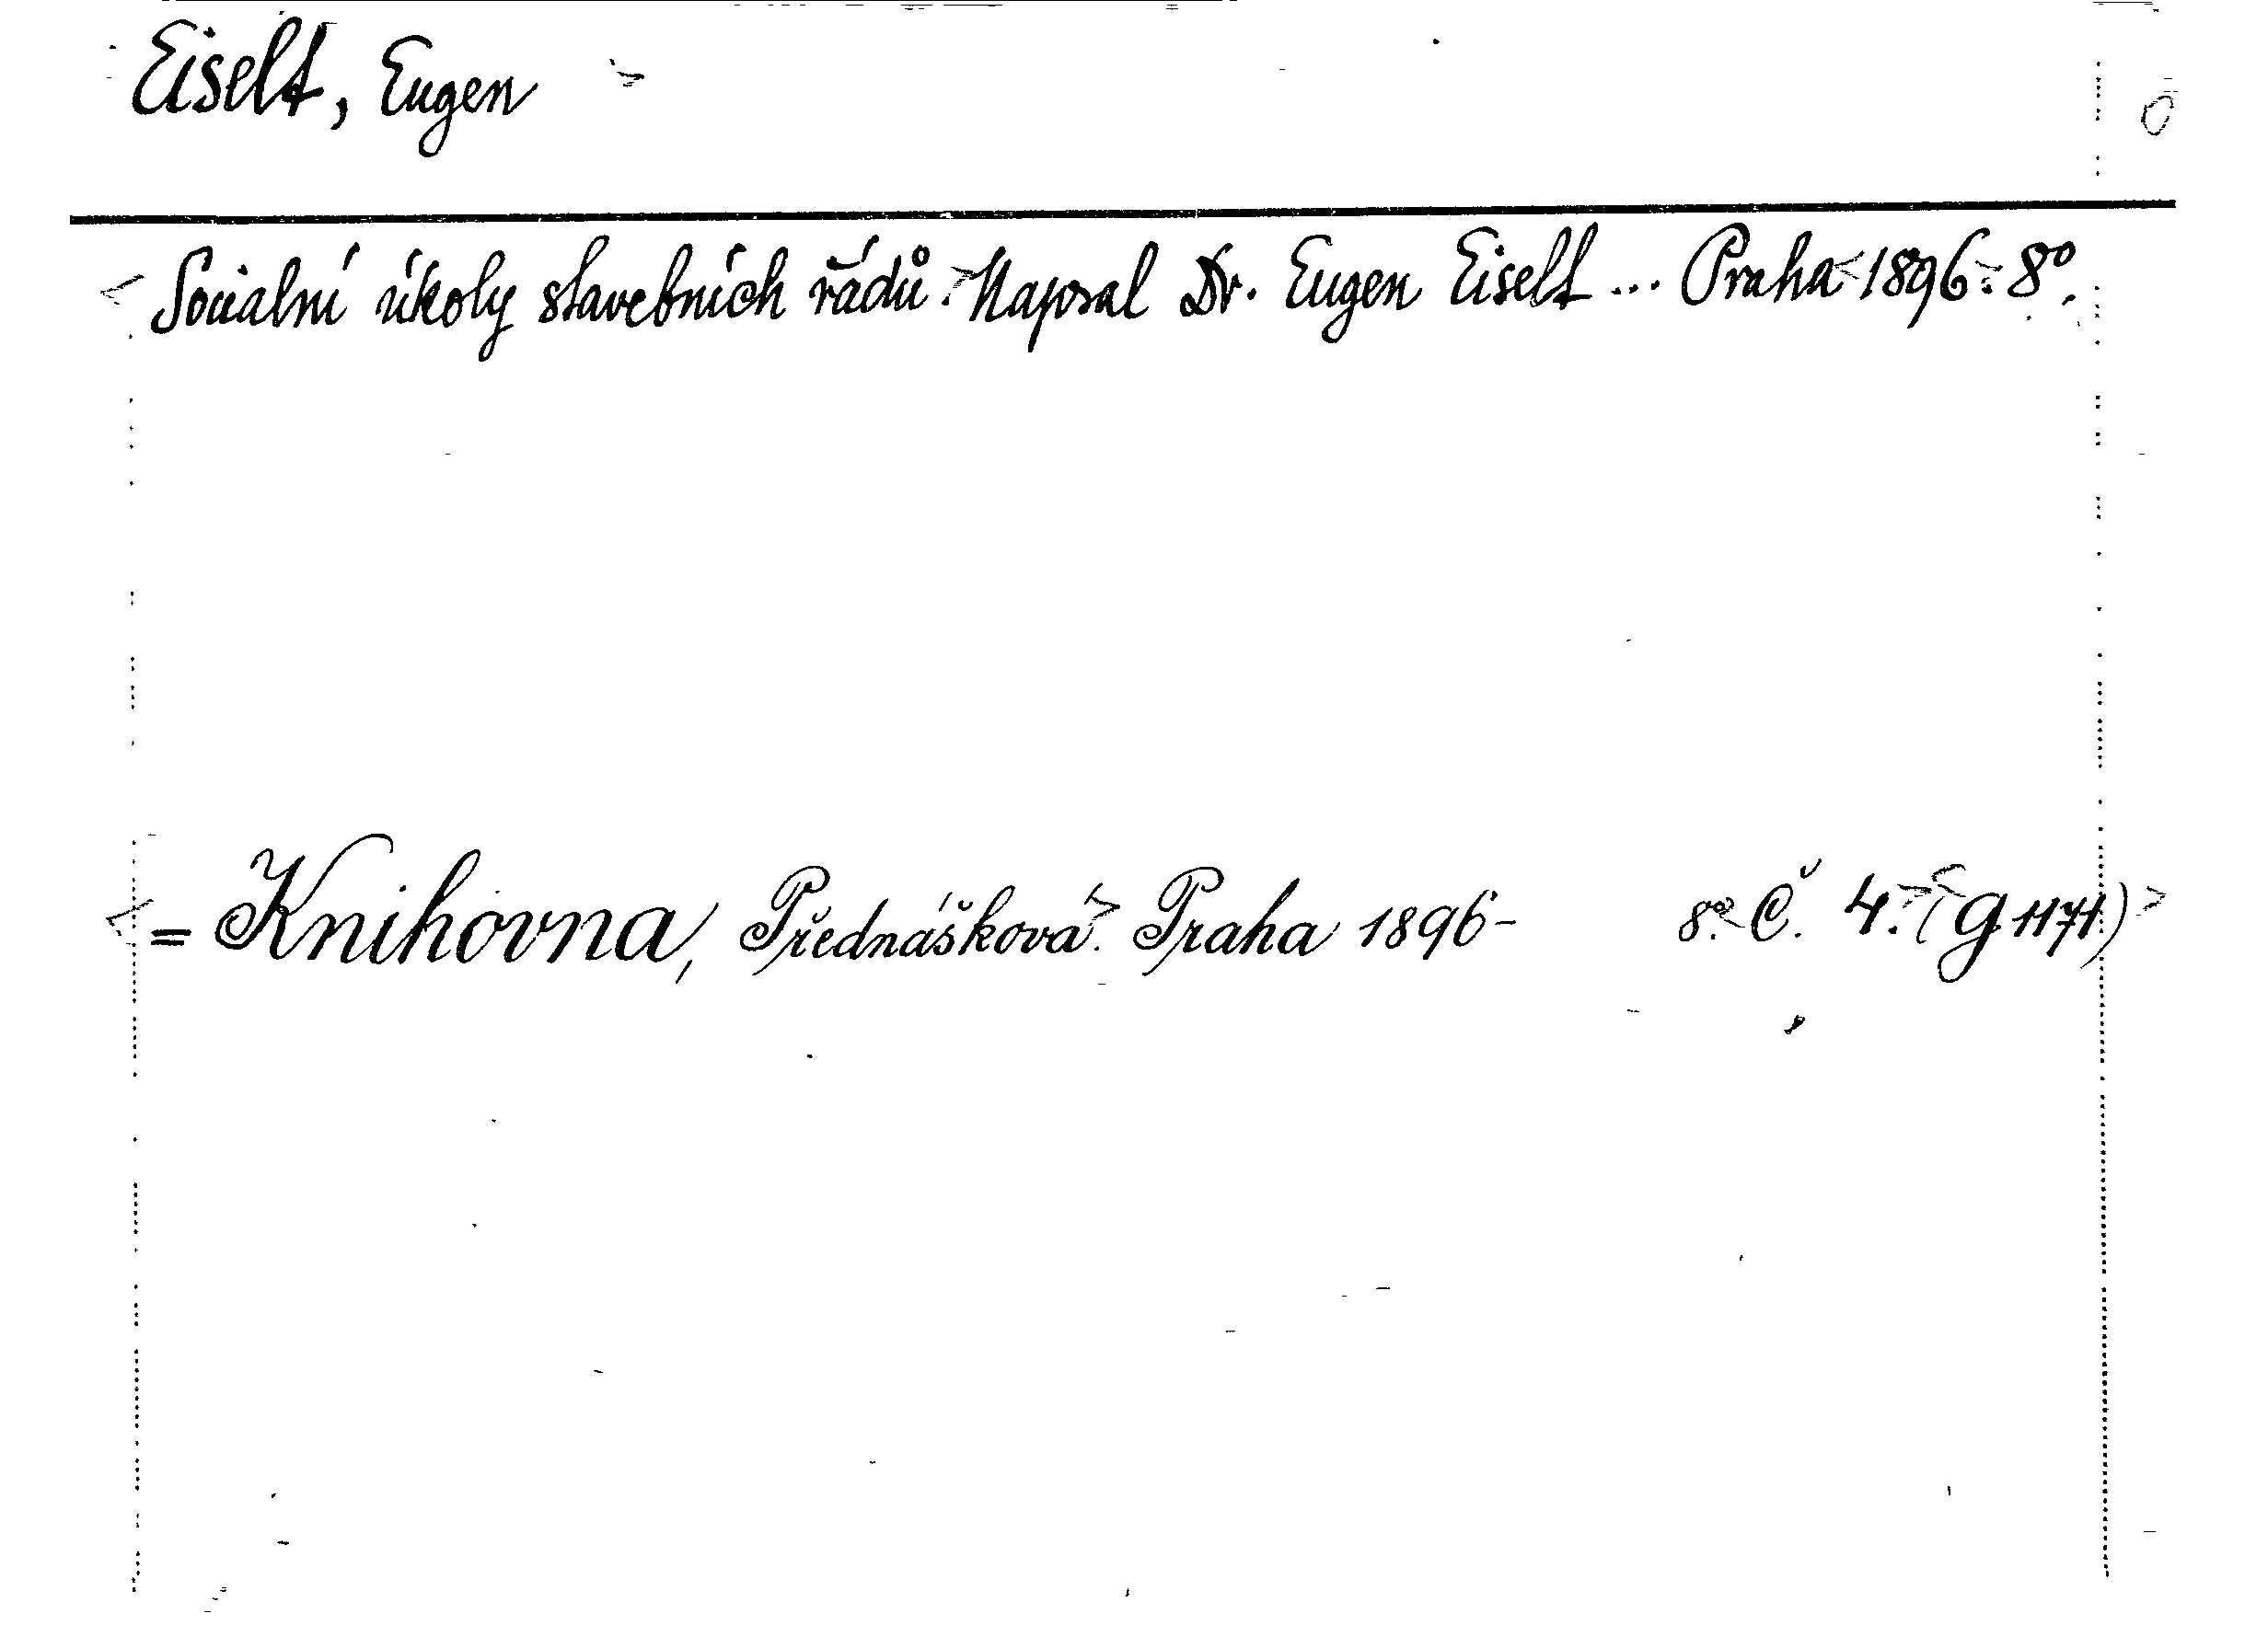 Eiselt, Eugen
Socialní úkoly stavebních řádů. Napsal Dr. Eugen Eiselt ... Praha 1896. 8°.
= Knihovna, Přednášková. Praha 1896- 8°. Č. 4. (g 1171)